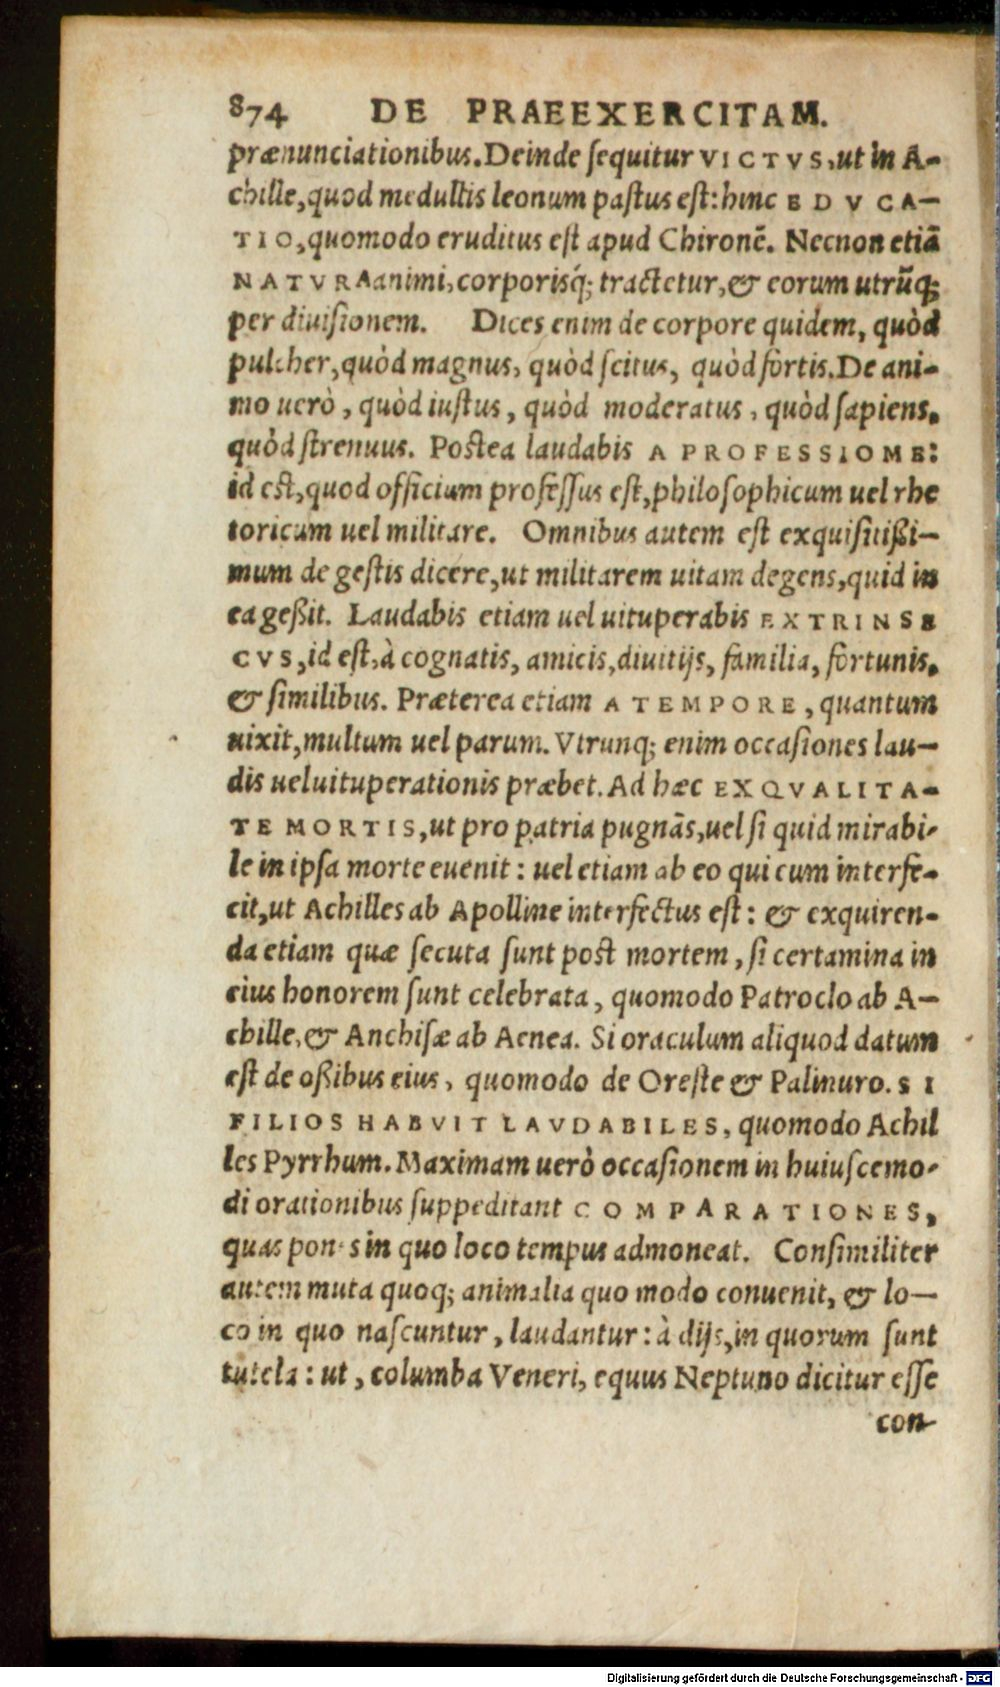 874 DE PRAEEXERCITAM.
prænunciationibus. Deinde sequitur VICTVS, ut in A-
chille, quod medullis leonum pastus est: hinc EDVCA-
TIO, quomodo eruditus est apud Chironē. Necnon etiā
NATVRA animi, corporisq́; tractetur, & eorum utrūq;
per diuisionem. Dices enim de corpore quidem, quòd
pulcher, quòd magnus, quòd scitus, quòd fortis. De ani-
mo uerò, quòd iustus, quòd moderatus, quòd sapiens,
quòd strenuus. Postea laudabis A PROFESSIONE:
id est, quod officium professus est, philosophicum uel rhe
toricum uel militare. Omnibus autem est exquisitißi-
mum de gestis dicere, ut militarem uitam degens, quid in
ea geßit. Laudabis etiam uel uituperabis EXTRINSE
CVS, id est, à cognatis, amicis, diuitijs, familia, fortunis,
& similibus. Præterea etiam A TEMPORE, quantum
uixit, multum uel parum. Vtrunq; enim occasiones lau-
dis uel uituperationis præbet. Ad hæc EX QVALITA-
TE MORTIS, ut pro patria pugnās, uel si quid mirabi-
le in ipsa morte euenit: uel etiam ab eo qui eum interfe-
cit, ut Achilles ab Apolline interfectus est: & exquiren-
da etiam quæ secuta sunt post mortem, si certamina in
eius honorem sunt celebrata, quomodo Patroclo ab A-
chille, & Anchisæ ab Aenea. Si oraculum aliquod datum
est de oßibus eius, quomodo de Oreste & Palinuro. SI
FILIOS HABVIT LAVDABILES, quomodo Achil
les Pyrrhum. Maximam uerò occasionem in huiuscemo-
di orationibus suppeditant COMPARATIONES,
quas pones in quo loco tempus admoneat. Consimiliter
autem muta quoq; animalia quo modo conuenit, & lo-
co in quo nascuntur, laudantur: à dijs, in quorum sunt
tutela: ut, columba Veneri, equus Neptuno dicitur esse
con-
Digitalisierung gefördert durch die Deutsche Forschungsgemeinschaft - DFG